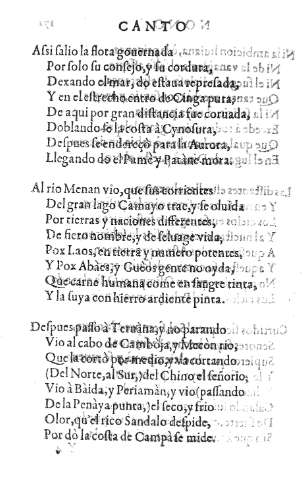 CANTO
Assi salio la flota gouernada
Por solo su consejo, y su cordura,
Dexando el mar, do estaua represada,
Y en el estrecho entro de Cingapura,
De aqui por gran distancia fue coruada,
Doblando se la costa à Cynosura,
Despues se endereçò para la Aurora,
Llegando do el Pame, y Patàne mora.
Al rio Menan vio, que sus corrientes
Del gran lago Camayo trae, y se oluida
Por tierras y naciones differentes,
De fiero nombre, y de seluage vida,
Pox Laos, en tierra y numero potentes,
Y Pox Abàes, y Gueos gente no oyda,
Que carne humana come en sangre tinta,
Y la suya con hierro ardiente pinta.
Despues passò à Ternàna, y no parando
Vio al cabo de Camboja, y Mecòn rio,
Que la corto por medio, y va cortando
(Del Norte, al Sur,) del Chino el señorio;
Vio à Bàida, y Periamàn, y vio (passando
De la Penàya punta,) el seco, y frio
Olor, qu'el rico Sandalo despide,
Por dò la costa de Campà se mide.